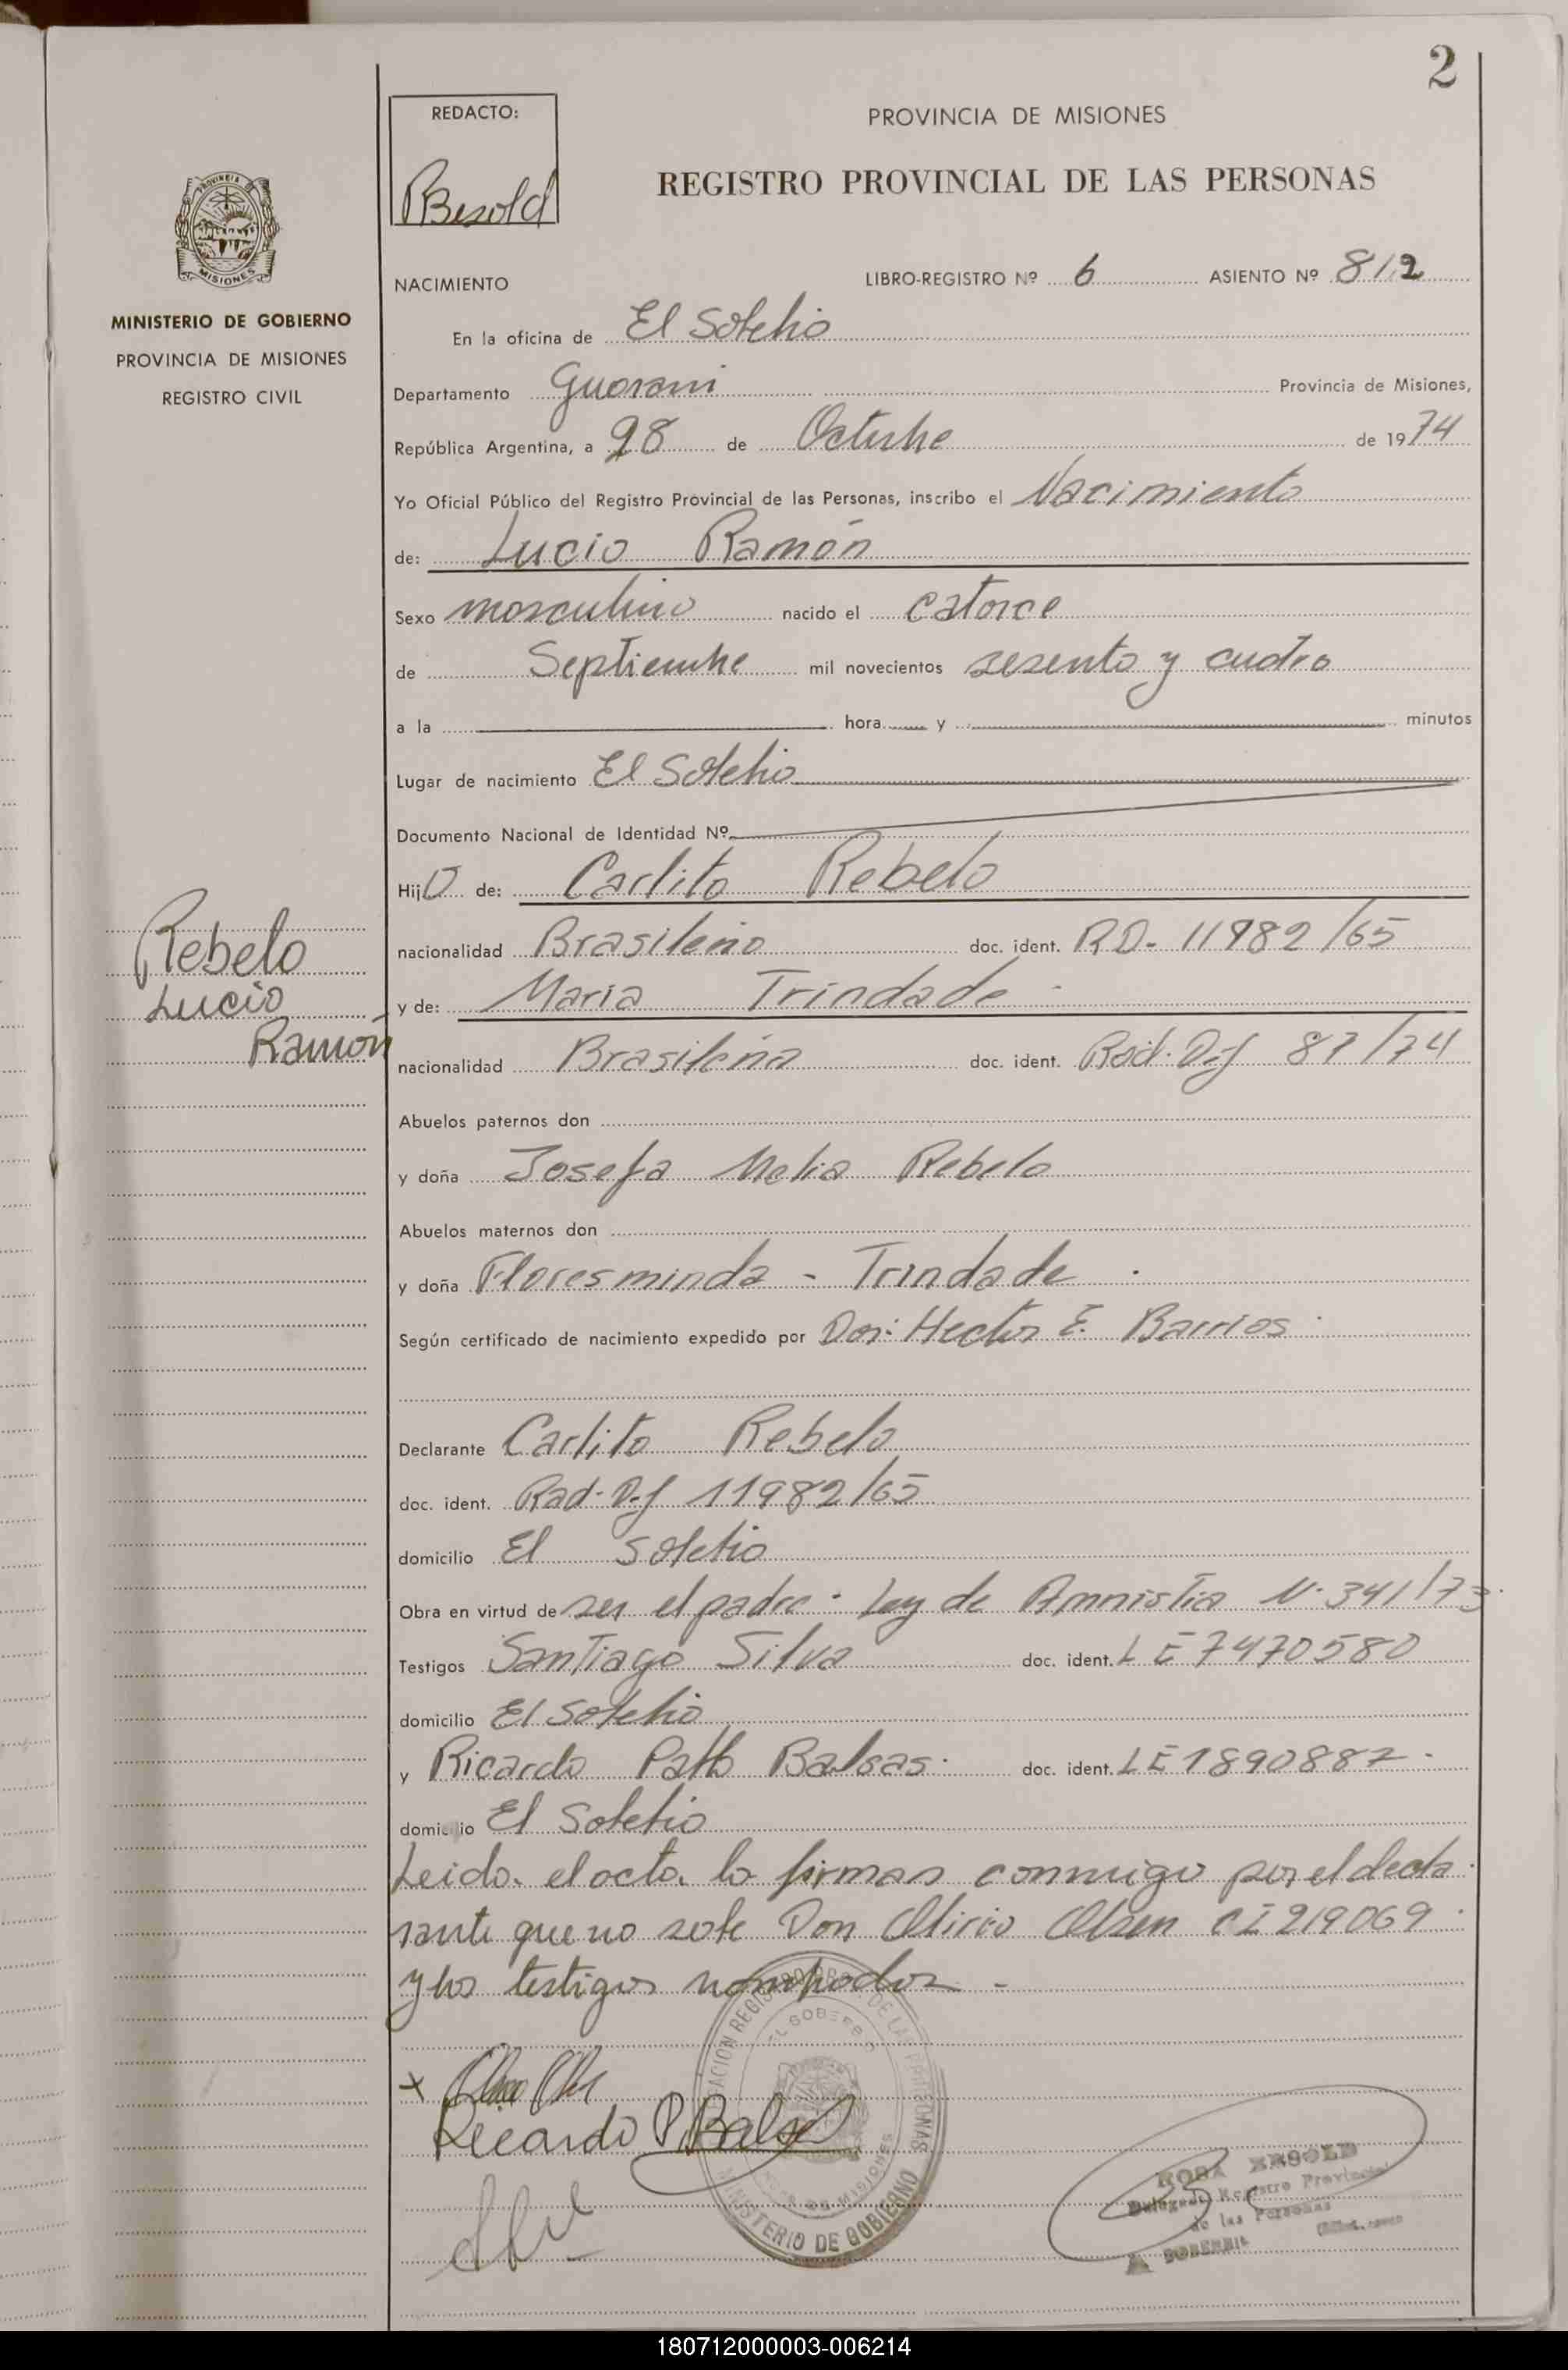 2
REDACTO:
Besold
PROVINCIA DE MISIONES
REGISTRO PROVINCIAL DE LAS PERSONAS
MISIONES
MINISTERIO DE GOBIERNO
PROVINCIA DE MISIONES
REGISTRO CIVIL
NACIMIENTO
LIBRO-REGISTRO Nº 6 ASIENTO Nº 812
En la oficina de El Soberbio
Departamento Guarani Provincia de Misiones,
República Argentina, a 28 de Octubre de 1974
Yo Oficial Público del Registro Provincial de las Personas, inscribo el Nacimiento
de: Lucio Ramón
Sexo masculino nacido el catorce
de Septiembre mil novecientos sesenta y cuatro
a la hora y minutos
Lugar de nacimiento El Soberbio
Documento Nacional de Identidad Nº
Hijo de: Carlito Rebelo
nacionalidad Brasileño doc. ident. RD- 11982/65
y de: Maria Trindade
nacionalidad Brasileña doc. ident. Rad. Def 87/74
Rebelo
Lucio
Ramón
Abuelos paternos don
y doña Josefa Rebelo
Abuelos maternos don
y doña Floresminda - Trindade
Según certificado de nacimiento expedido por Don: Hector E. Barrios
Declarante Carlito Rebelo
doc. ident. Rad. Def 11982/65
domicilio El Soberbio
Obra en virtud de ser el padre - Ley de Amnistia N. 341/73
Testigos Santiago Silva doc. ident. LE 7470580
domicilio El Soberbio
y Ricardo Balsas doc. ident. LE 1890887
domicilio El Soberbio
Leido el acta la firman conmigo por el decla
rante que no sabe Don Olsen CI 219069
y los testigos nombrados -
x
Ricardo P. Balsa
MINISTERIO DE GOBIERNO
ROSA BESOLD
Registro Provincial
de las Personas
SOBERBIO
180712000003-006214